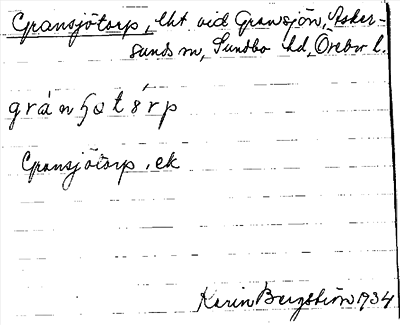 Gransjötorp, lht vid Gransjön, Asker-
sunds sn, Sundbo hd, Örebro l.
Gransjötorp, ek
Karin Bergström 1934